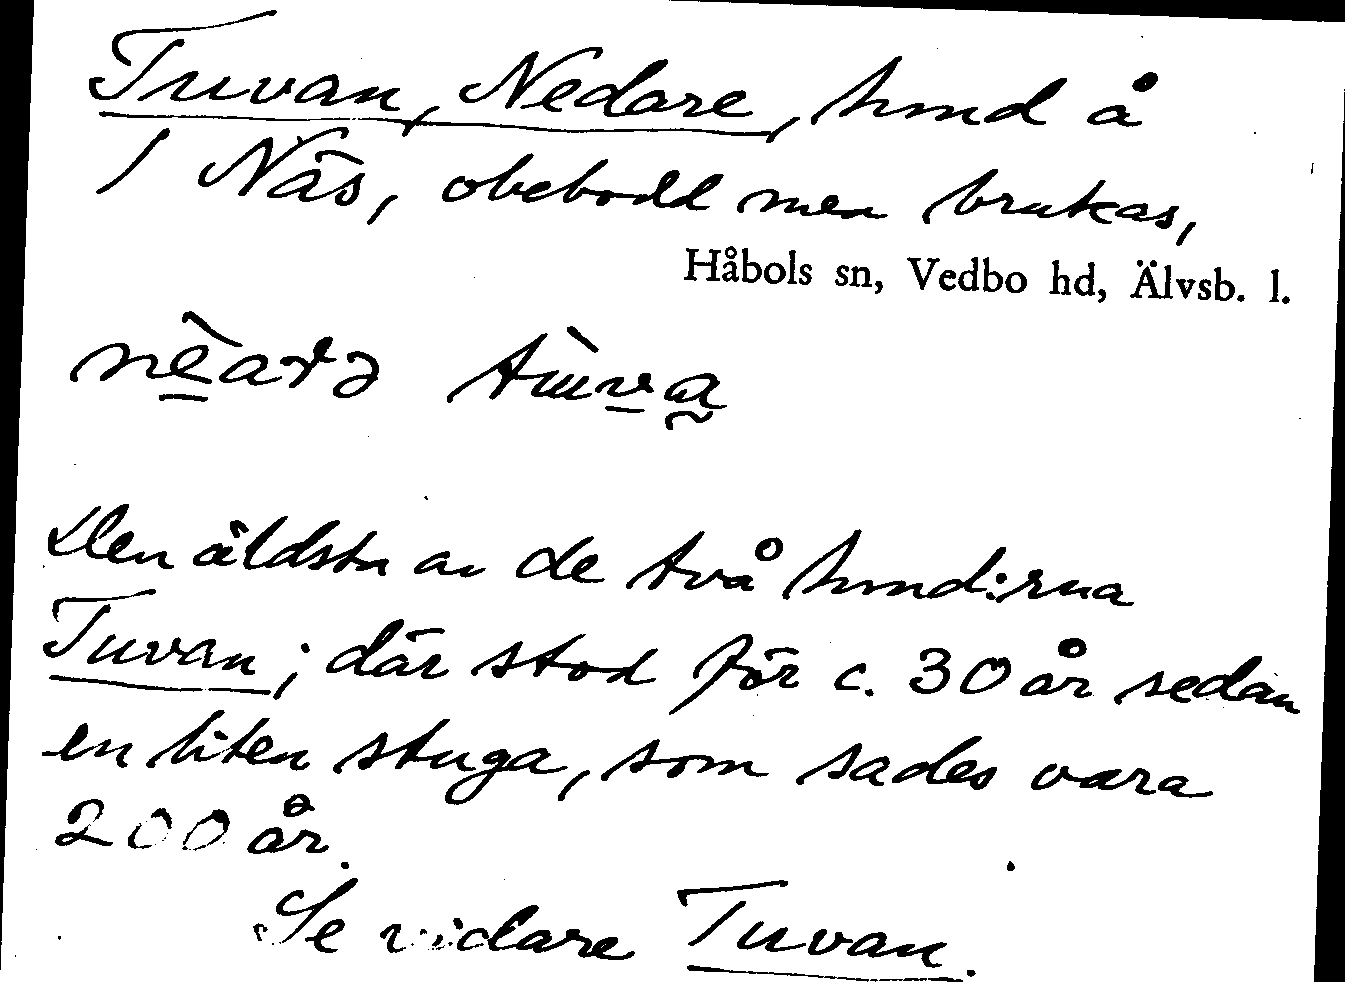 Tuvan, Nedare, hmd å
1 Näs, obebodd men brukas,
Håbols sn, Vedbo hd, Älvsb. l.
Den äldsta av de två hmd:rna
Tuvan; där stod för c. 30 år sedan
en liten stuga, som sades vara
200 år.
Se vidare Tuvan.